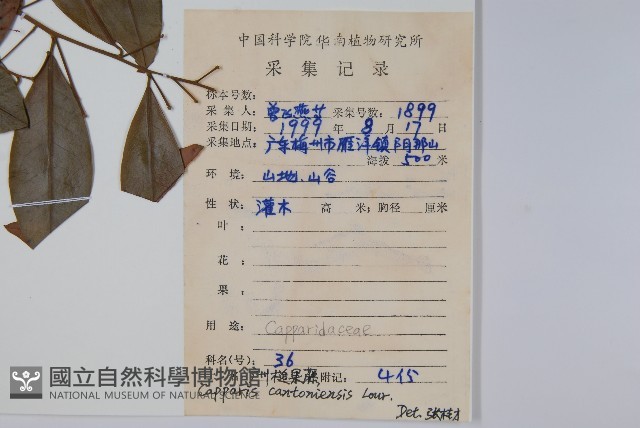 中国科学院华南植物研究所
采集记录
标本号数:
采集人: 曾飞燕 采集号数: 1899
采集日期: 1999 年 8 月 17 日
采集地点: 广东梅州市雁洋镇阴那山
海拔 500 米
环境: 山地、山谷
性状: 灌木 高 米; 胸径 厘米
叶:
花:
果:
用途: Capparidaceae
科名(号): 36
附记: 415
國立自然科學博物館
NATIONAL MUSEUM OF NATURAL SCIENCE
Capparis cantoniensis Lour.
Det. 张桂才